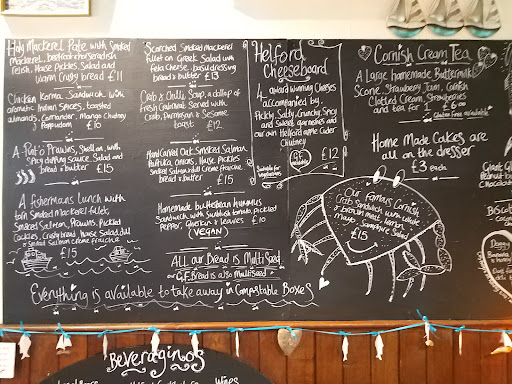 Holy Mackerel Pate with Smoked
Mackerel, beetroot & horseradish
relish, House Pickles, Salad and
warm Crusty bread £11
Chicken Korma Sandwich with
aromatic Indian Spices, toasted
almonds, Coriander, Mango Chutney
& Poppudom £10
A-Pint-o Prawns, Shell on, with
Spicy dipping sauce, Salad and
bread & butter £15
A Fishermans Lunch with
Smoked Mackerel fillet,
Smoked Salmon, Prawns, Pickled
Cockles, Crusty bread, House Salad, dill
& Smoked Salmon creme fraiche
£15
Scorched Smoked Mackerel
Fillet on Greek Salad with
Feta Cheese, dressing
bread & butter £13
Crab & Chilli Soup, a dollop of
fresh Crabmeat Served with
Crab, Parmesan & Sesame
toast £12
Hand Carved Oak Smoked Salmon,
Paprika, Onions, House Pickles
Smoked Salmon Creme fraiche,
bread & butter £15
Homemade butterbean hummus
Sandwich with Sunblush tomato, pickled
Pepper, Gherkins & leaves £10
(VEGAN)
ALL our Bread is Multi Seed
our G.F. Bread is also Multiseed
Everything is available to take away in Compostable Boxes
Helford
Cheeseboard
4 award winning Cheeses
accompanied by
Pickly, Salty, Crunchy, Spicy
and Sweet garnishes and
our own Helford apple Cider
Chutney
Suitable for
Vegetarians
£12
Cornish Cream Tea
A Large Homemade Buttermilk
Scone, Strawberry Jam, Cornish
Clotted Cream, Strawberries
and tea for 1 £6.00
Gluten Free available
Home Made Cakes are
all on the dresser
£3 each
Our Famous Cornish
Crab Sandwich with white
& brown meat, lemon
mayo, Samphire Salad
£15
Giant G
Peanut bu
Chocola
BiSCot
Doggy
Banana
& Honey
Beveraginos